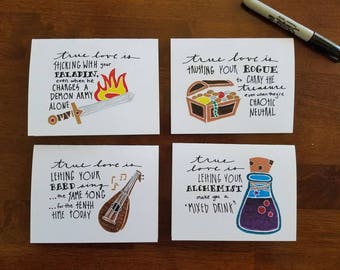 true love is
STICKING WITH your
PALADIN,
even when he
CHARGES A
DEMON ARMY
ALONE
true love is
TRUSTING YOUR ROGUE
to CARRY the
treasure
even when they're
CHAOTIC
NEUTRAL
true love is
LETTING YOUR
BARD sing
...the SAME SONG
...for the TENTH
TIME TODAY
true love is
LETTING YOUR
ALCHEMIST
make you a
"MIXED DRINK"